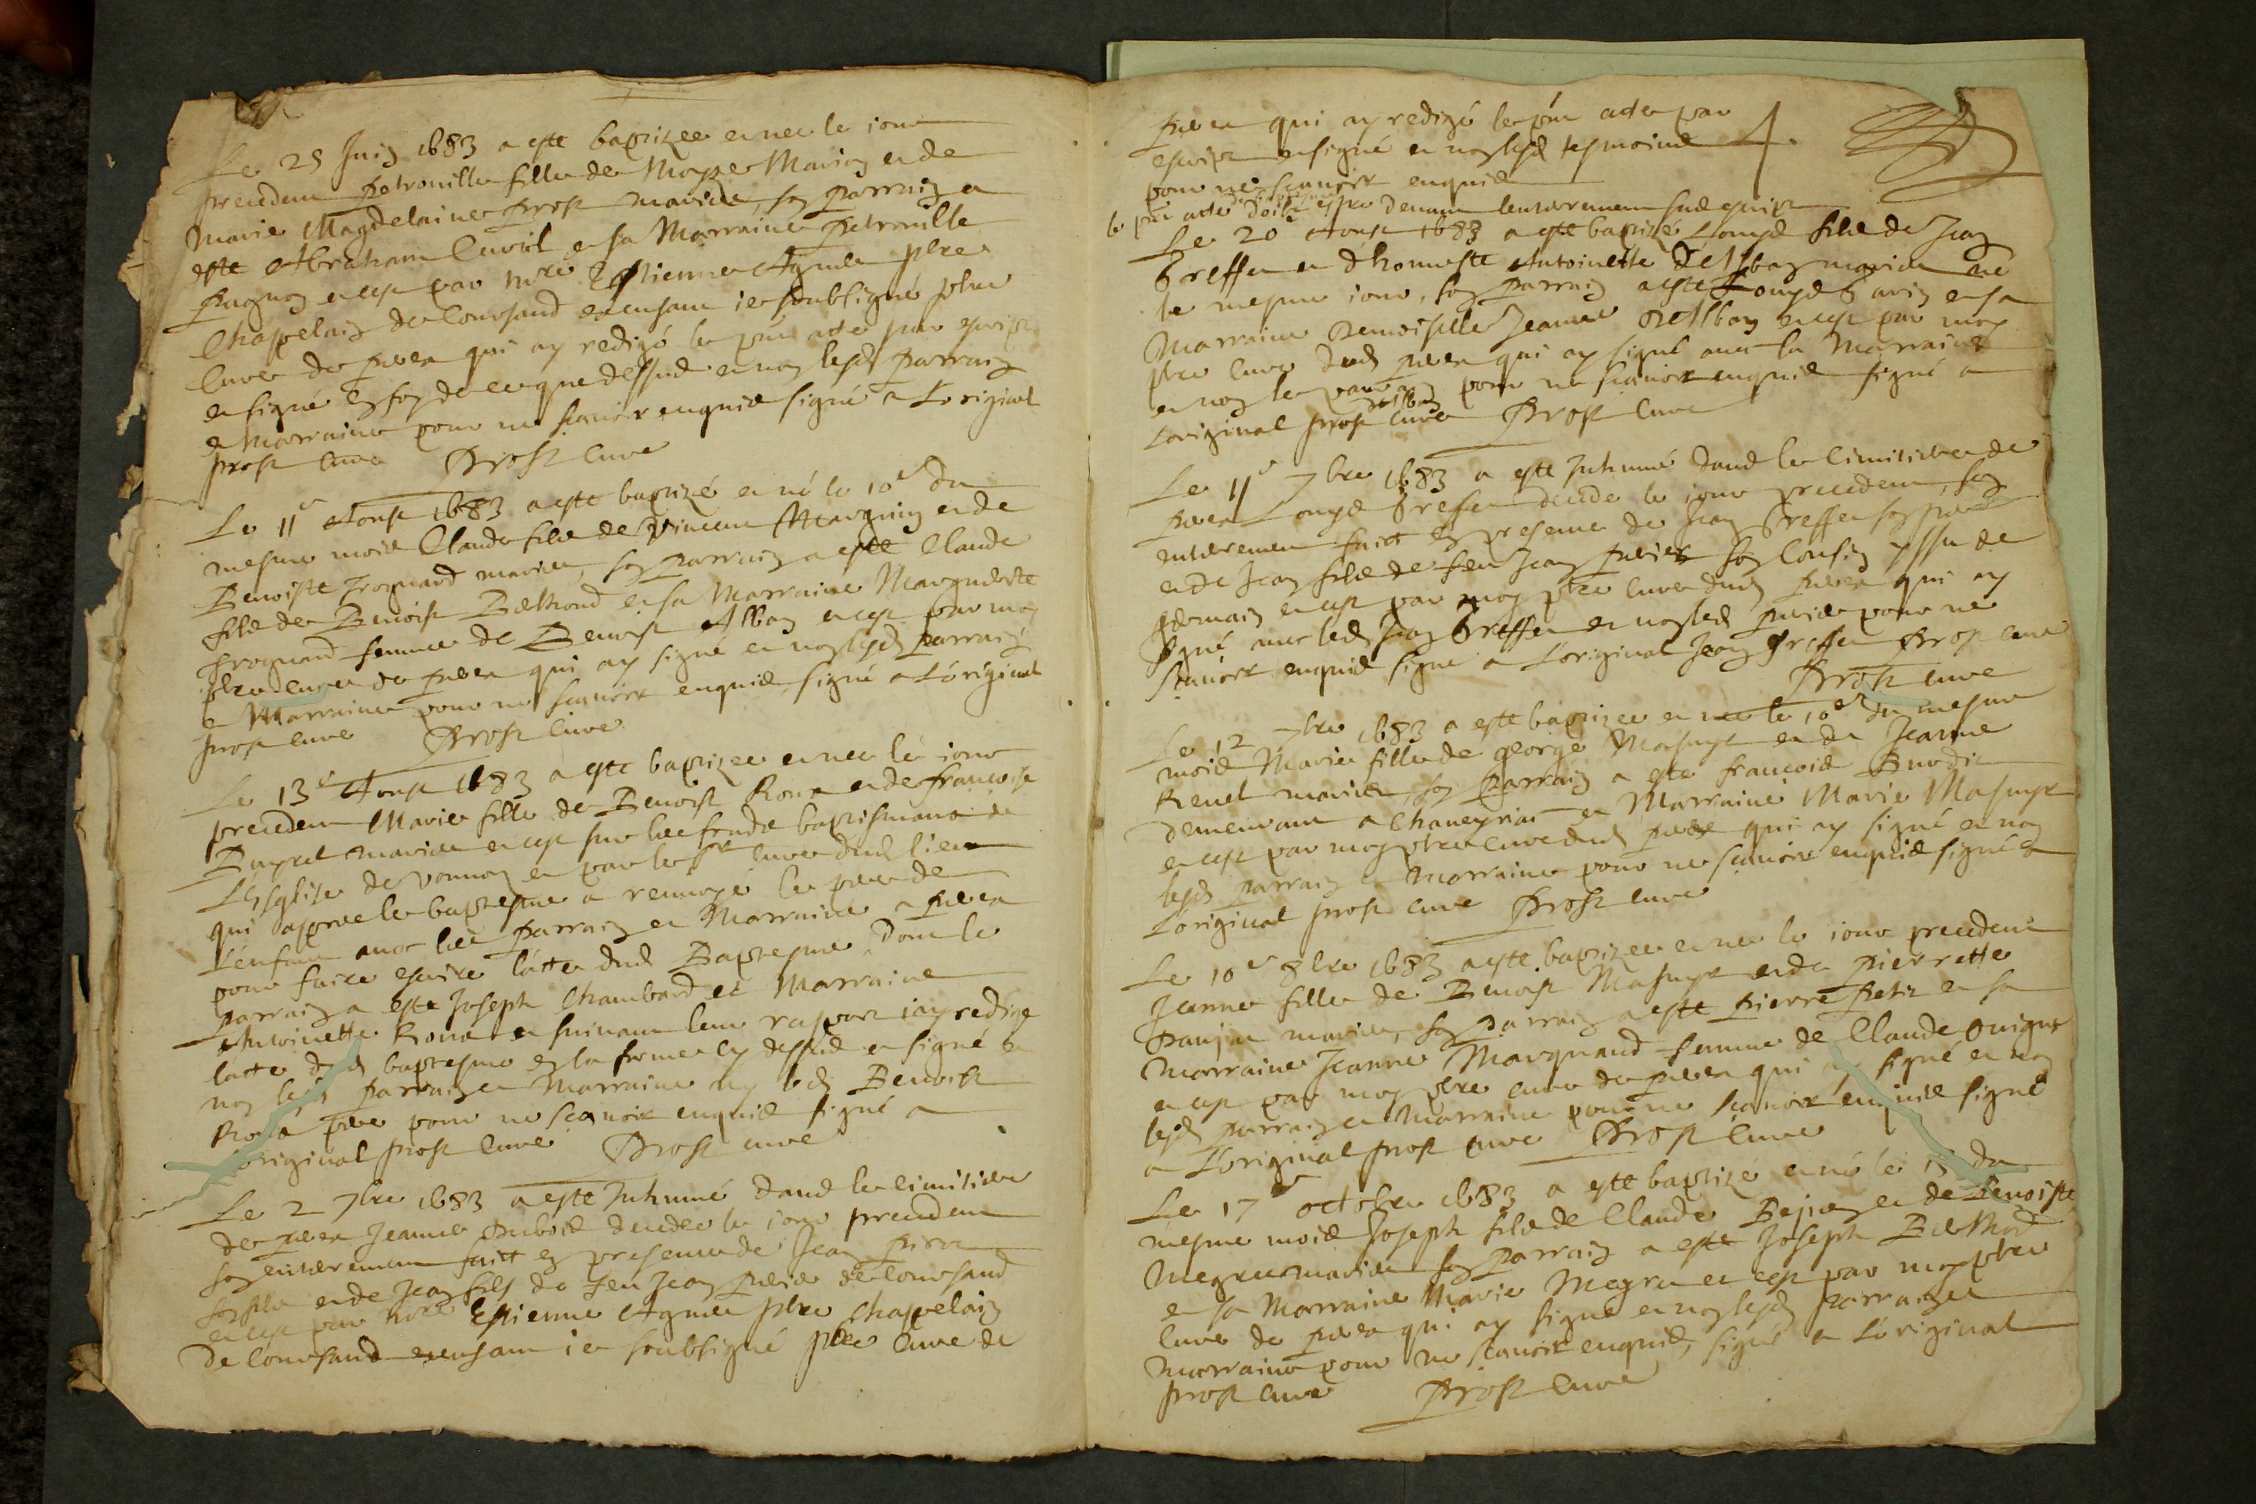 Le 25 Juin 1683 a este baptizee et nee le iour
precedent petronille fille de Moyze Marin et de
Marie Magdelaine Prost mariés, son parrain a
este Abraham Curvil et sa Marraine petronille
et ce par Mre Estienne Agniel pbre
Chappelain de Coursand et ensant ie soubsigné pbre
Curé de qui ay redigé le pnt acte par escript
et signé en foy de ce que dessus et non lesd parrain
et Marraine pour ne scavoir enquis signé a Loriginal
prost Curé Prost Curé
Le 11e Aoust 1683 a este baptizé et né le 10e du
mesme mois Claude fils de Vincent et de
Benoiste Froquand mariés, son parrain a este Claude
fils de Benoist et sa Marraine Marguerite
Froquand femme de Benoist Alban et ce par moy
pbre curé de qui ay signé et non lesd parrain
et Marraine pour ne scavoir enquis, signé a Loriginal
prost Curé Prost Curé
Le 13e Aoust 1683 a este baptizee et nee le iour
precedent Marie fille de Benoist Roux et de francoise
mariés et ce sur les fonds baptismaux de
LEsglise de Vonnas et par le sr Curé dud lieu
qui apres le baptesme a renvoyé le pere de
Lenfant avec les Parrain et Marraine a
pour faire escrire lacte dud Baptesme, dont le
parrain a este Joseph Chambard et Marraine
Antoinette Roux et suivant leur raport iay redige
lacte dud baptesme en la forme cy dessus et signé et
non lesd Parrain et Marraine ny led Benoist
Roux pere pour ne scavoir enquis signé a
Loriginal prost Curé Prost curé
Le 2 7bre 1683 a este Inhumé dans le cimitiere
de Jeanne Dubois decedee le iour precedent
son enterrement faict en presence de Jean
son fils et de Jean fils de feu Jean de Coursand
et ce par Mre Estienne Agniel pbre Chappelain
de Coursand et ensant ie soubsigné pbre Curé de
qui ay redigé le pnt acte par
escript et signé et non lesd tesmoins
pour ne scavoir enquis
le pnt acte doibt estre devant lenterrement sus escript
Le 20e Aoust 1683 a este baptizé Louys fils de Jean
Greffet et dhonneste Antoinette mariés né
le mesme iour, son parrain a este Louys et sa
Marraine Demoiselle Jeanne et ce par moy
pbre Curé dud qui ay signé avec la Marraine
et non le parrain pour ne scavoir enquis signé a
Loriginal prost curé Prost Curé
Le 11e 7bre 1683 a este Inhumé dans le cimitiere de
Louys Greffet decede le iour precedent, son
enterrement faict en presence de Jean Greffet son pere
et de Jean fils de feu Jean son Cousin yssu de
germain et ce par moy pbre curé dud qui ay
signé avec led Jean Greffet et non led pour ne
scavoir enquis signé a Loriginal Jean Greffet Prost curé
Prost Curé
Le 12 7bre 1683 a este baptizee et nee le 10e du mesme
mois Marie fille de george Masuyr et de Jeanne
Revel mariés, son Parrain a este francois
demeurant a Chaneyrias et Marraine Marie Masuyr
et ce par moy pbre curé dud qui ay signé et non
lesd parrain et Marraine pour ne scavoir enquis signé a
Loriginal prost curé Prost curé
Le 10e 8bre 1683 a este baptizee et nee le iour precedent
Jeanne fille de Benoist Masuyr et de pierrette
mariés, son Parrain a este pierre petit et sa
Marraine Jeanne Marquand femme de Claude
et ce par moy pbre curé de qui ay signé et non
lesd parrain et Marraine pour ne scavoir enquis signé
a Loriginal prost curé Prost Curé
Le 17 octobre 1683 a este baptizé et né le du
mesme mois Joseph fils de Claude et de Benoiste
Megru mariés son Parrain a este Joseph
et sa Marraine Marie Megru et ce par moy pbre
Curé de qui ay signé et non lesd Parrain et
Marraine pour ne scavoir enquis, signé a Loriginal
prost Curé Prost Curé